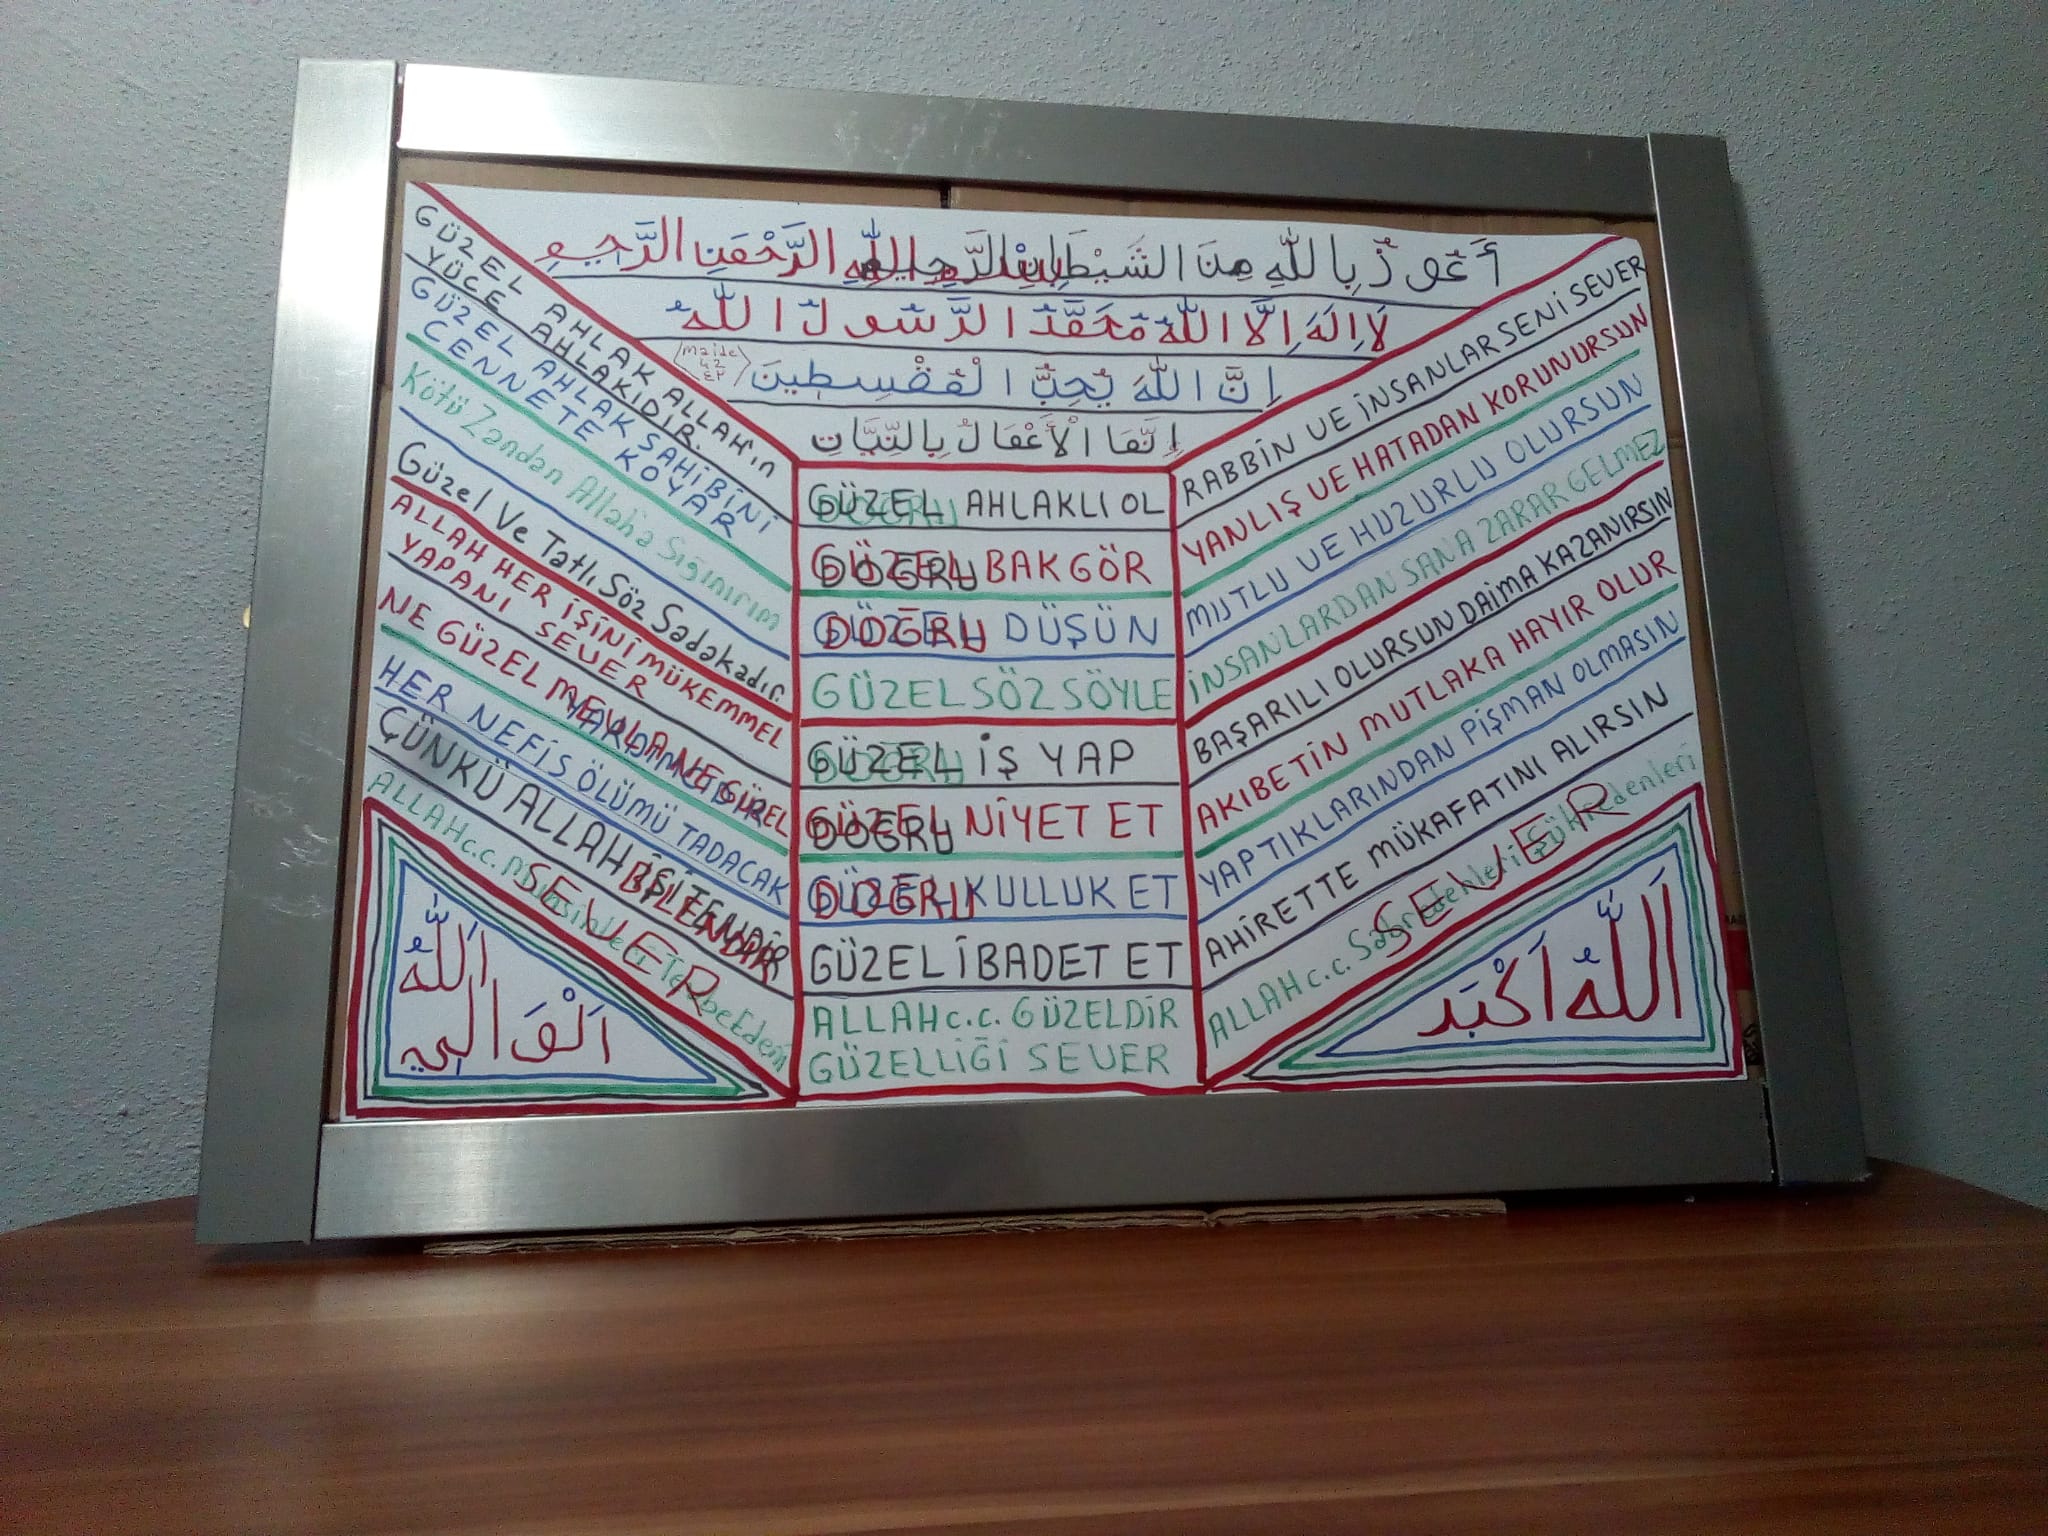 أَعُوذُ بِاللّٰهِ مِنَ الشَّيْطَانِ الرَّجِيمِ بِسْمِ اللّٰهِ الرَّحْمَنِ الرَّحِيمِ
لَا اِلَهَ اِلَّا اللّٰهُ مُحَمَّدُ الرَّسُولُ اللّٰهُ
اِنَّ اللّٰهَ يُحِبُّ الْمُقْسِطِينَ
maide
42
٤٢
اِنَّمَا الْأَعْمَالُ بِالنِّيَّاتِ
GÜZEL AHLAK ALLAH'ın
YÜCE AHLAKIDIR.
GÜZEL AHLAK SAHİBİNİ
CENNETE KOYAR
Kötü Zandan Allaha Sığınırım
Güzel Ve Tatlı Söz Sadakadır.
ALLAH HER İŞİNİ MÜKEMMEL
YAPANI SEVER
NE GÜZEL MEVLA NE GÜZEL YARDIMCIDIR
HER NEFİS ÖLÜMÜ TADACAK
ÇÜNKÜ ALLAH İŞİTENDİR BİLENDİR
ALLAH c.c. Muhsinleri Tevbe Edeni
SEVER
GÜZEL DOĞRU AHLAKLI OL
GÜZEL DOĞRU BAK GÖR
GÜZEL DOĞRU DÜŞÜN
GÜZEL SÖZ SÖYLE
GÜZEL DOĞRU İŞ YAP
GÜZEL DOĞRU NİYET ET
GÜZEL DOĞRU KULLUK ET
GÜZEL İBADET ET
ALLAH c.c. GÜZELDİR
GÜZELLİĞİ SEVER
RABBİN VE İNSANLAR SENİ SEVER
YANLIŞ VE HATADAN KORUNURSUN
MUTLU VE HUZURLU OLURSUN
İNSANLARDAN SANA ZARAR GELMEZ
BAŞARILI OLURSUN DAİMA KAZANIRSIN
AKIBETİN MUTLAKA HAYIR OLUR
YAPTIKLARINDAN PİŞMAN OLMASIN
AHİRETTE MÜKAFATINI ALIRSIN
ALLAH c.c. Sabredenleri Şükredenleri
SEVER
اَللّٰهُ
اَلْوَالِي
اَللّٰهُ اَكْبَر